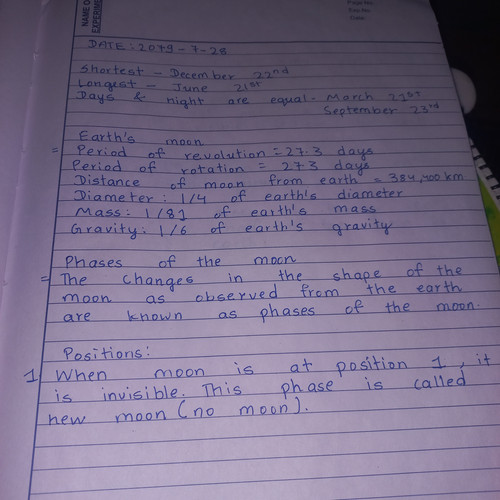 NAME O
EXPERIM
Page No.
Date
DATE: 2079-7-28
Shortest - December 22nd
Longest - June 21st
Days & night are equal - March 21st
September 23rd
Earth's moon
= Period of revolution = 27.3 days
Period of rotation = 273 days
Distance of moon from earth = 384,400 km
Diameter: 1/4 of earth's diameter
Mass: 1/81 of earth's mass
Gravity: 1/6 of earth's gravity
Phases of the moon
= The changes in the shape of the
moon as observed from the earth
are known as phases of the moon.
Positions:
1 When moon is at position 1, it
is invisible. This phase is called
new moon (no moon).